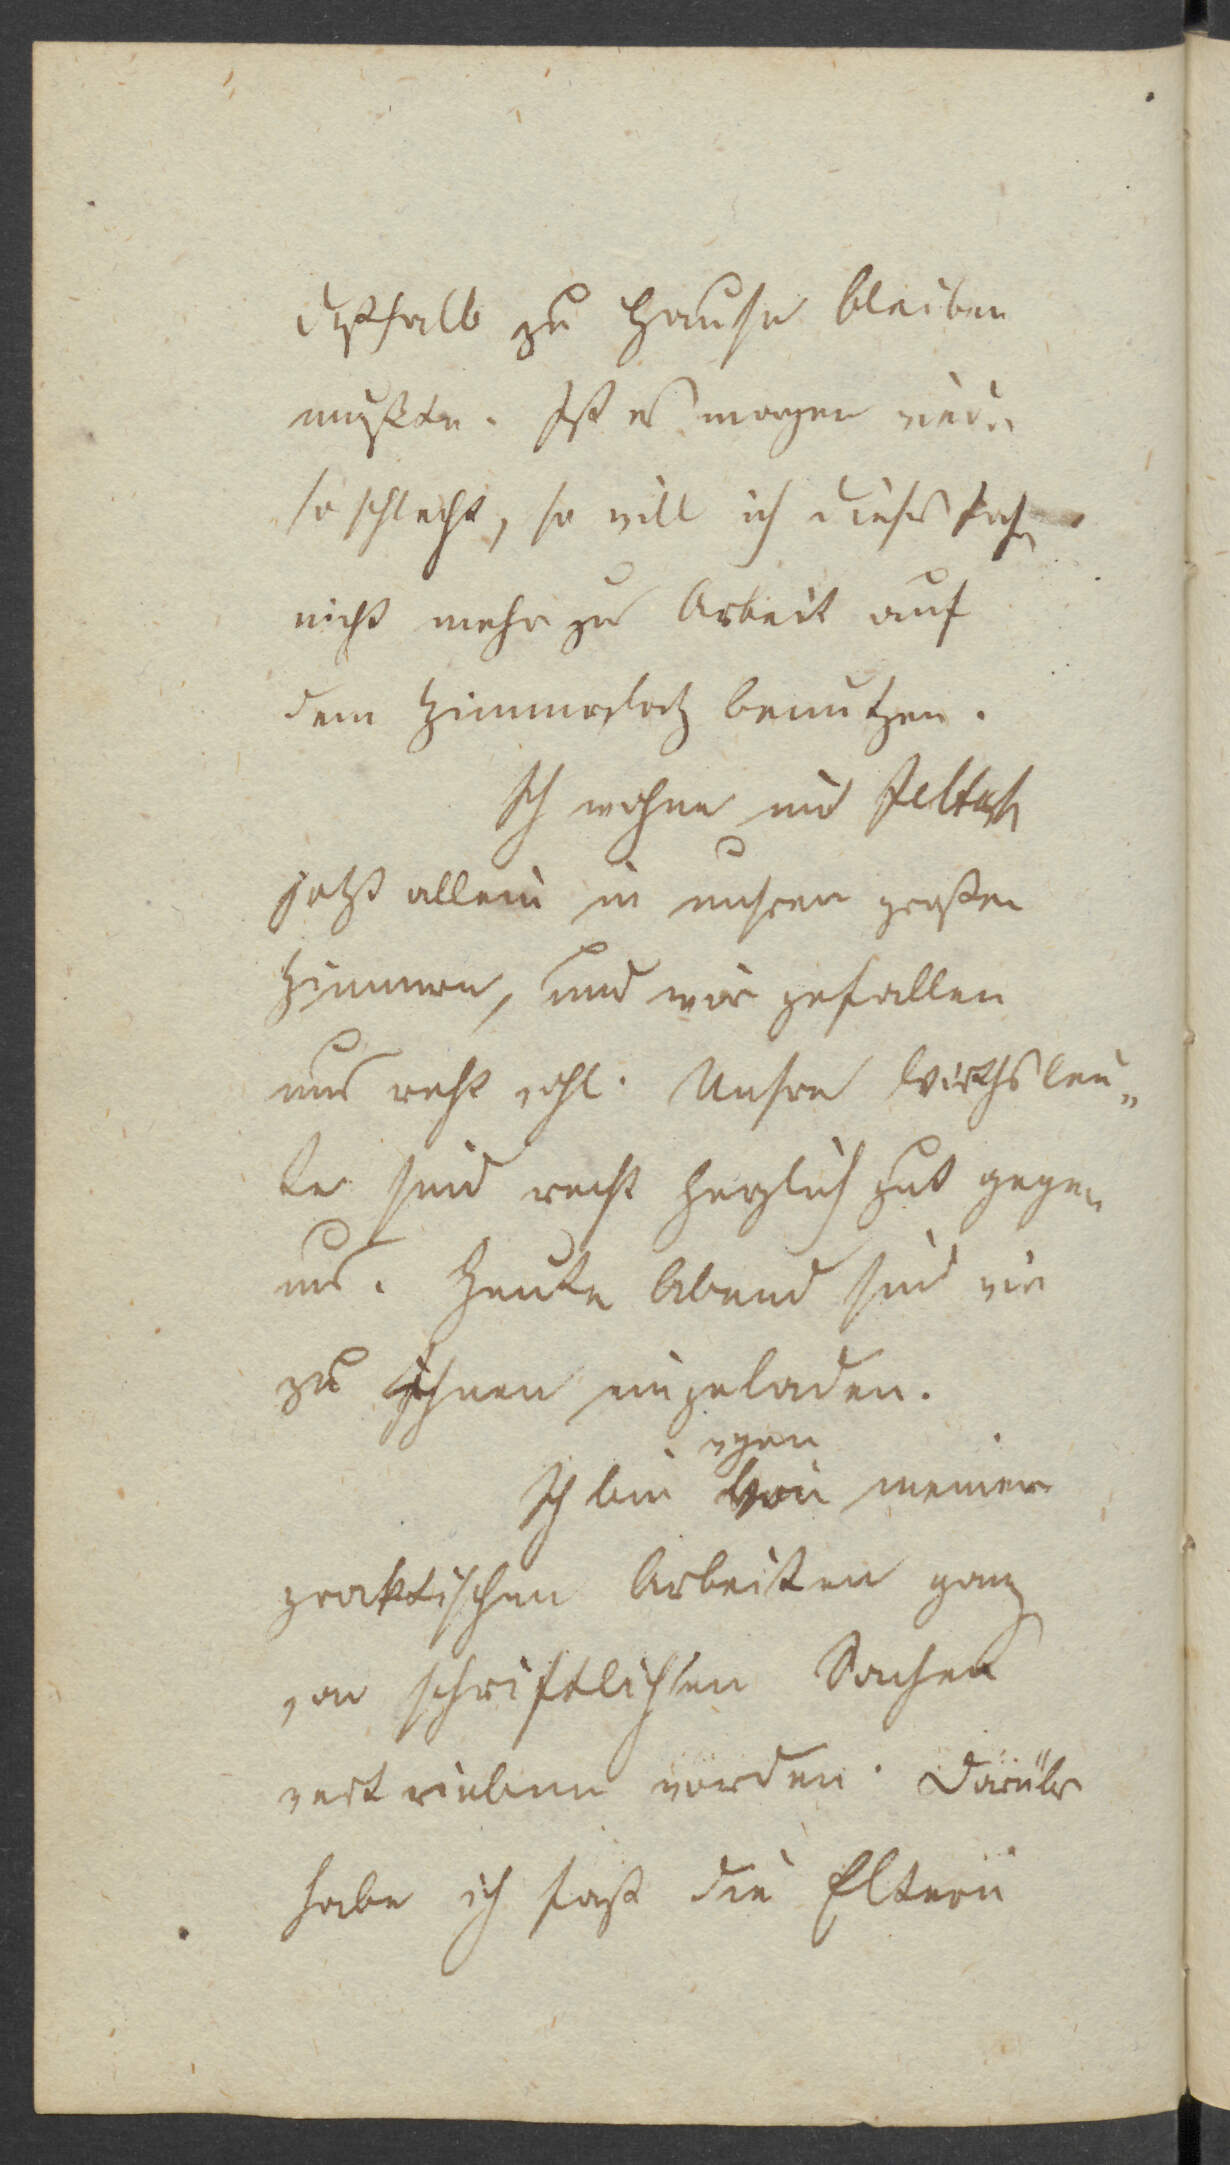 deßhalb zu Hause bleiben
mußte. Ist es morgen wieder
so schlecht, so will ich dieses
nicht mehr zur Arbeit auf
dem Zimmerplatz benutzen.
Ich wohne mit
jetzt allein in unsren großen
Zimmern, und wir gefallen
uns recht wohl. Unsre Wirthsleu„
te sind recht herzlich gut gegen
uns. Heute Abend sind wir
zu ihnen eingeladen.
wegen
Ich bin meiner
praktischen Arbeiten ganz
von schriftlichen Sachen
vertrieben worden. Darüber
habe ich fast die Eltern